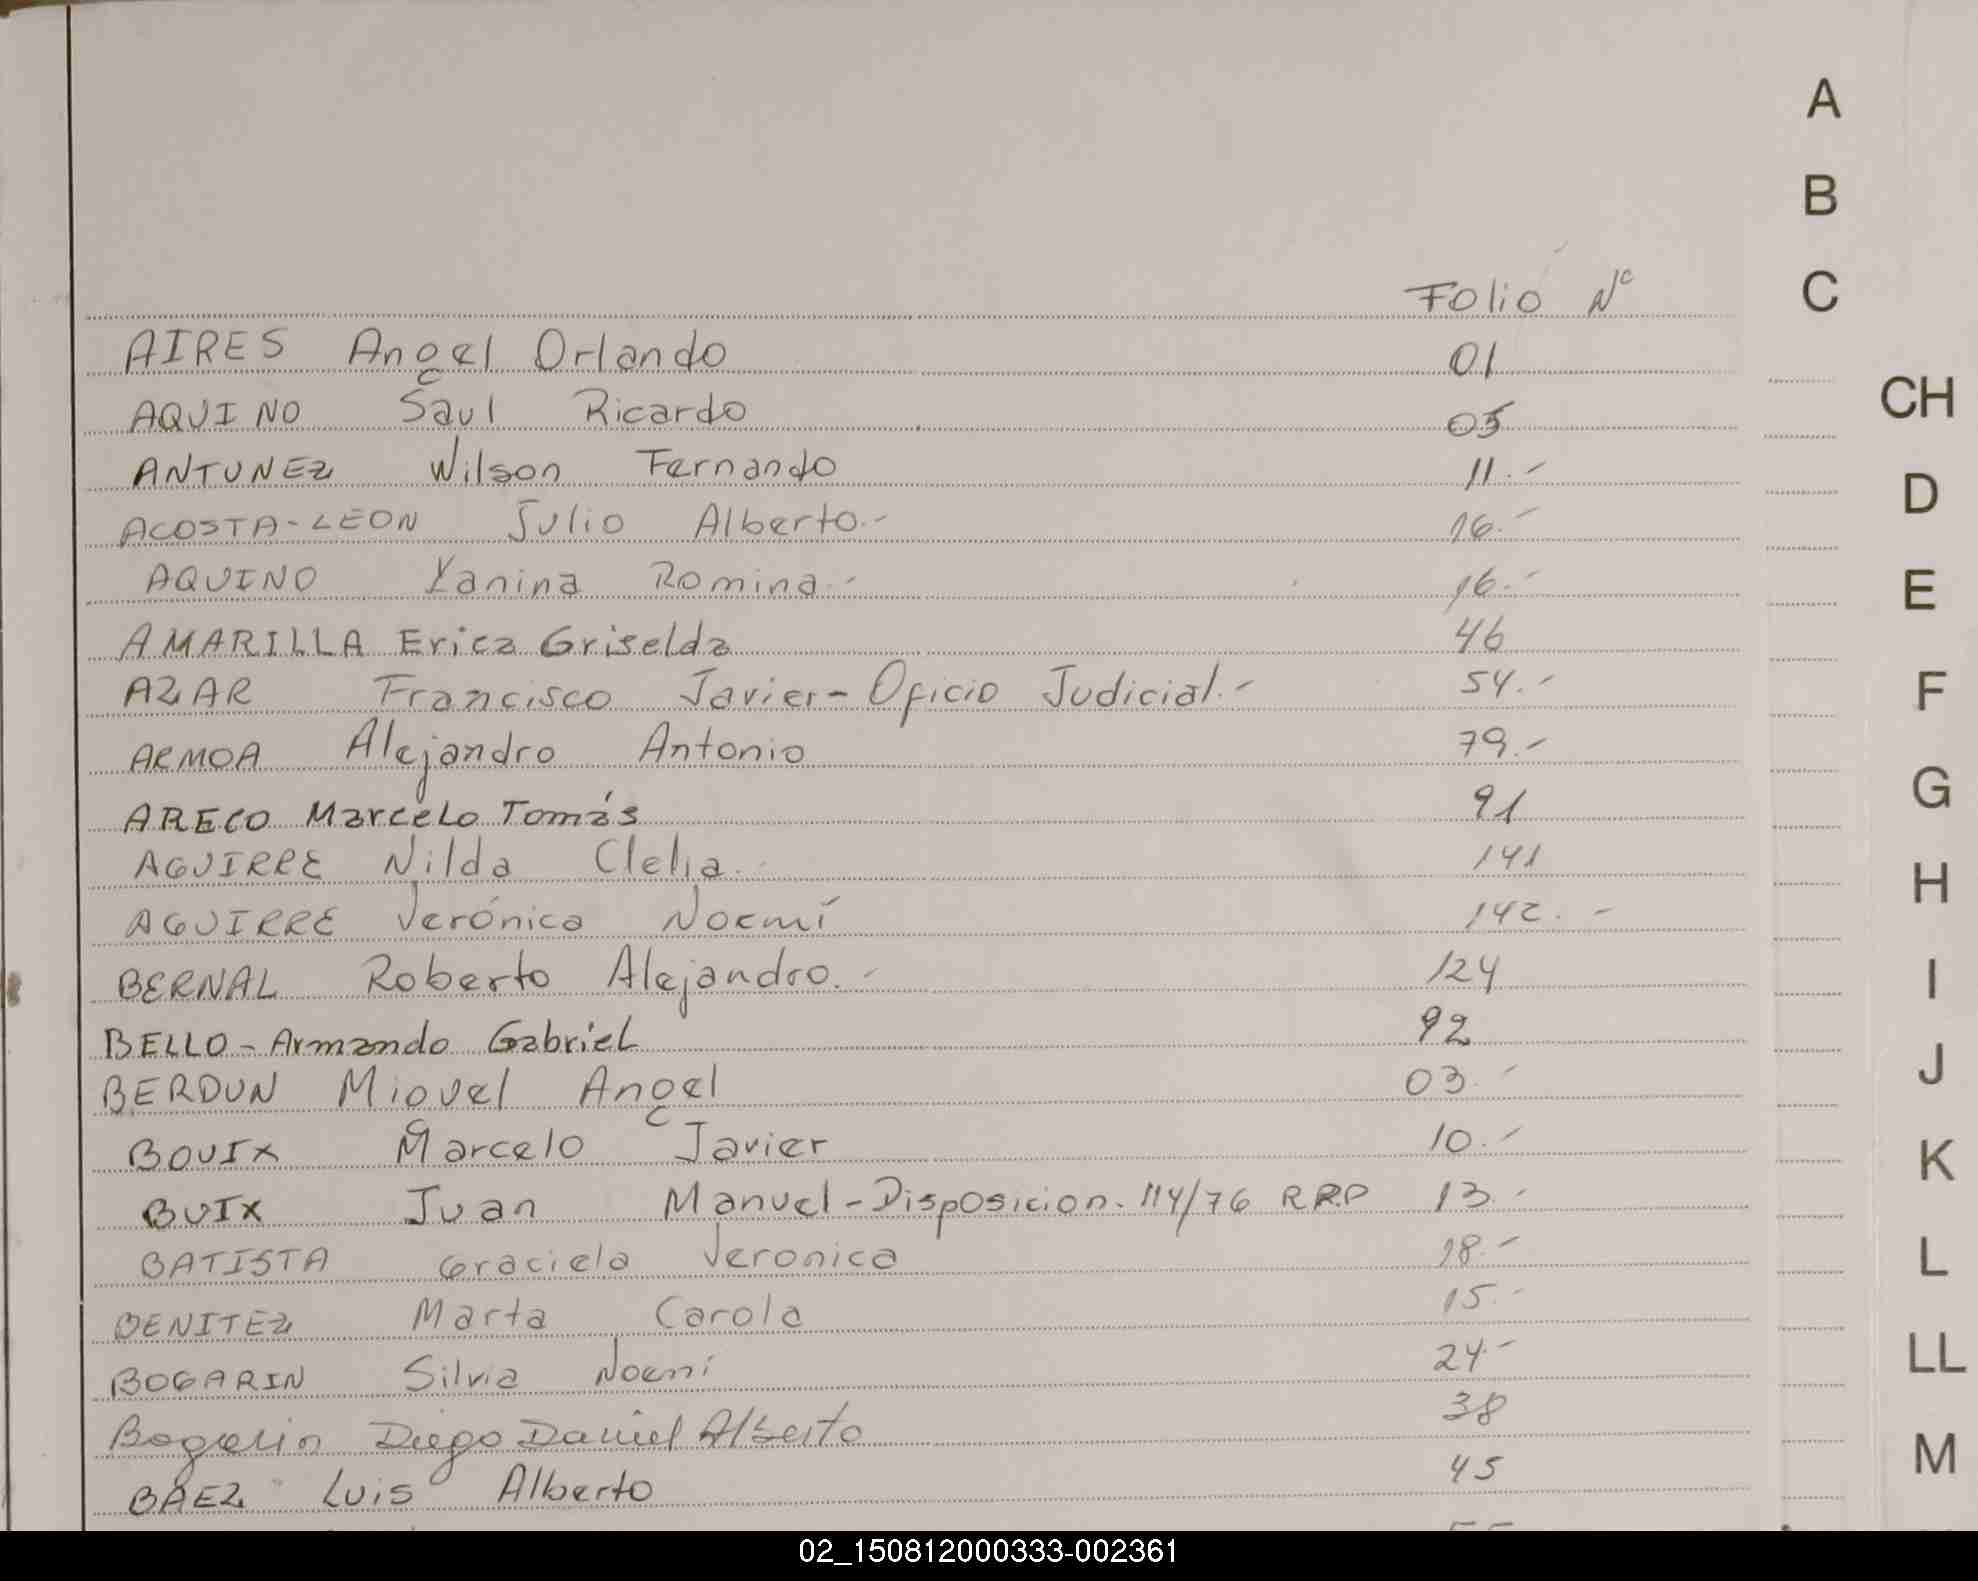 A
B
C
Folio Nº
AIRES Angel Orlando 01
AQUINO Saul Ricardo 05
CH
ANTUNEZ Wilson Fernando 11.-
D
ACOSTA-LEON Julio Alberto.- 16.-
AQUINO Yanina Romina.- 16.-
E
AMARILLA Erica Griselda 46
AZAR Francisco Javier-Oficio Judicial.- 54.-
F
ARMOA Alejandro Antonio 79.-
G
ARECO Marcelo Tomás 91
AGUIRRE Nilda Clelia. 141
H
AGUIRRE Verónica Noemí 142.-
BERNAL Roberto Alejandro.- 124
I
BELLO-Armando Gabriel 92
J
BERDUN Miguel Angel 03.-
BOUIX Marcelo Javier 10.-
K
BUIX Juan Manuel-Disposicion.114/76 RRP 13.-
BATISTA Graciela Veronica 18.-
L
BENITEZ Marta Carola 15.-
BOGARIN Silvia Noemi 24.-
LL
Bogarin Diego Daniel Alberto 38
M
BAEZ Luis Alberto 45
02_150812000333-002361